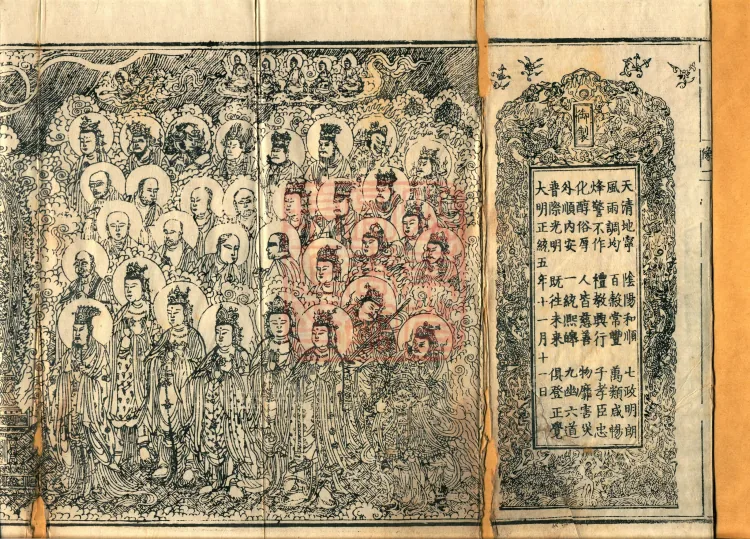 御製
天清地寧 陰陽和順 七政明朗
風雨調均 百穀常豐 萬類咸暢
烽警不作 禮敎興行 子孝臣忠
化醇俗厚 人皆慈善 物靡害災
外順內安 一統熙皞 九幽六道
普際光明 既往未來 俱登正覺
大明正統五年十一月十一日